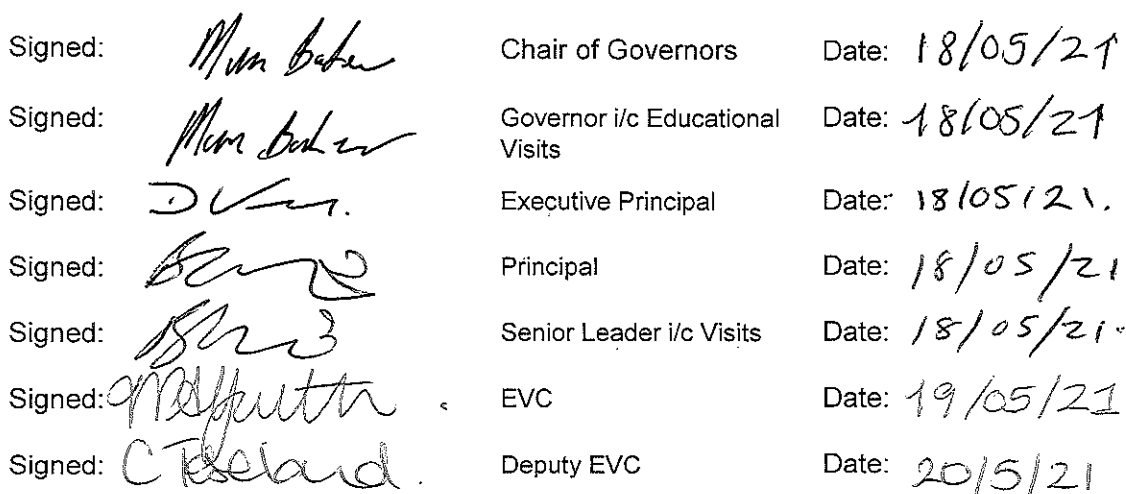 Signed: Chair of Governors Date: 18/05/21
Signed: Governor i/c Educational Date: 18/05/21
Visits
Signed: Executive Principal Date: 18/05/21.
Signed: Principal Date: 18/05/21
Signed: Senior Leader i/c Visits Date: 18/05/21.
Signed: EVC Date: 19/05/21
Signed: C Deputy EVC Date: 20/5/21